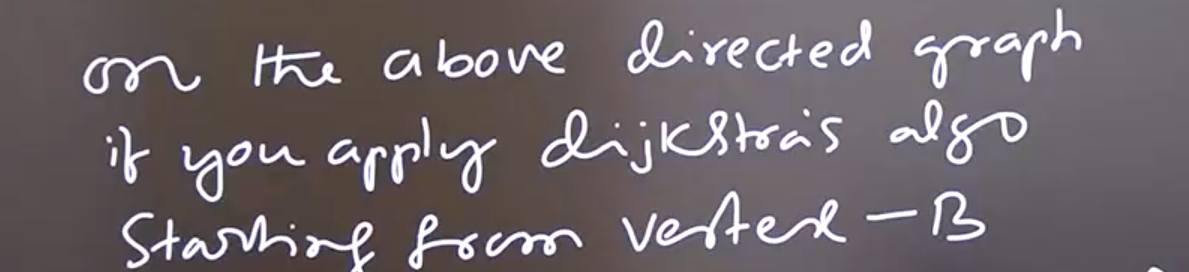 on the above directed graph
if you apply dijkstra's algo
Starting from vertex - B